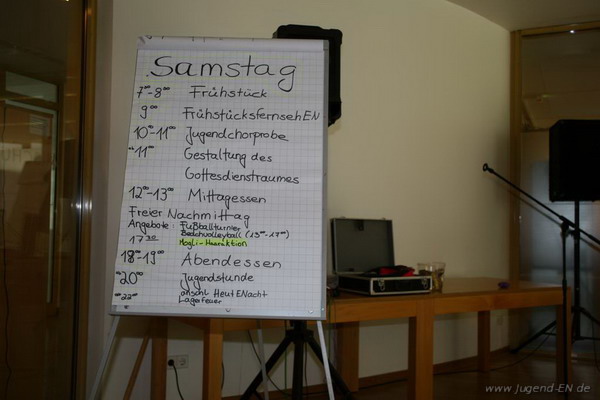 Samstag
7⁰⁰-8⁰⁰ Frühstück
9⁰⁰ FrühstücksfernsehEN
10⁰⁰-11⁰⁰ Jugendchorprobe
11⁰⁰ Gestaltung des
Gottesdienstraumes
12⁰⁰-13⁰⁰ Mittagessen
Freier Nachmittag
Angebote: Fußballturnier
Beachvolleyball (13⁰⁰-17⁰⁰)
17³⁰ Mogli-Haaraktion
18⁰⁰-19⁰⁰ Abendessen
20⁰⁰ Jugendstunde
22⁰⁰ anschl. HeutENacht
Lagerfeuer
www.Jugend-EN.de